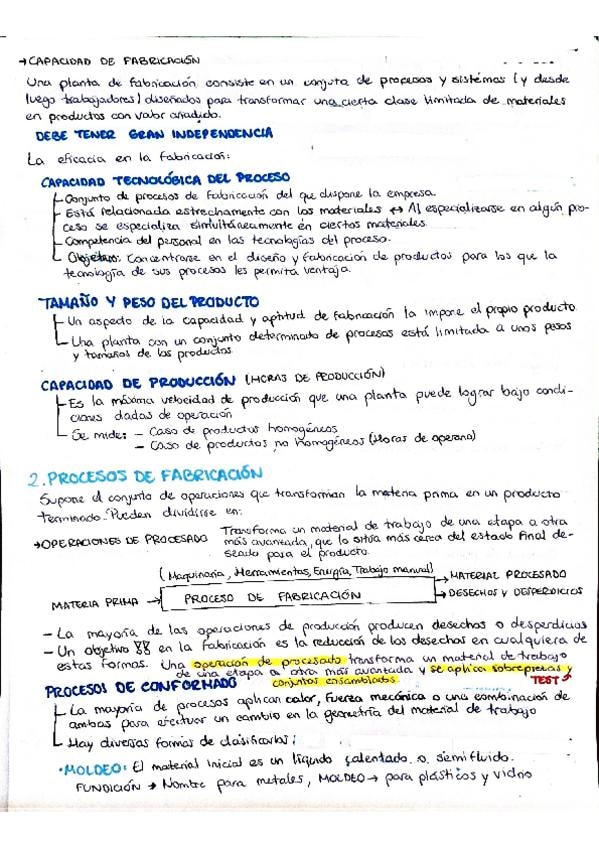 → CAPACIDAD DE FABRICACIÓN
Una planta de fabricación consiste en un conjuto de procesos y sistemas (y desde
luego trabajadores) diseñados para transformar una cierta clase limitada de materiales
en productos con valor añadido.
DEBE TENER GRAN INDEPENDENCIA
La eficacia en la fabricación:
CAPACIDAD TECNOLÓGICA DEL PROCESO
- Conjunto de procesos de fabricación del que dispone la empresa.
- Está relacionada estrechamente con los materiales ↔ Al especializarse en algún pro-
ceso se especializa simultáneamente en ciertos materiales.
- Competencia del personal en las tecnologías del proceso.
- Objetivo: Concentrarse en el diseño y fabricación de productos para los que la
tecnología de sus procesos les permita ventaja.
TAMAÑO Y PESO DEL PRODUCTO
- Un aspecto de la capacidad y aptitud de fabricación la impone el propio producto.
- Una planta con un conjunto determinado de procesos está limitada a unos pesos
y tamaños de los productos.
CAPACIDAD DE PRODUCCIÓN (HORAS DE PRODUCCIÓN)
- Es la máxima velocidad de producción que una planta puede lograr bajo condi-
ciones dadas de operación
- Se mide: - Caso de productos homogéneos
- Caso de productos no homogéneos (Horas de operario)
2. PROCESOS DE FABRICACIÓN
Supone el conjunto de operaciones que transforman la materia prima en un producto
terminado. Pueden dividirse en:
→ OPERACIONES DE PROCESADO Transforma un material de trabajo de una etapa a otra
más avanzada, que lo sitúa más cerca del estado final de-
seado para el producto.
(Maquinaria, Herramientas, Energía, Trabajo manual)
MATERIA PRIMA → PROCESO DE FABRICACIÓN → MATERIAL PROCESADO
→ DESECHOS Y DESPERDICIOS
- La mayoría de las operaciones de producción producen desechos o desperdicios
- Un objetivo en la fabricación es la reducción de los desechos en cualquiera de
estas formas. Una operación de procesado transforma un material de trabajo
de una etapa a otra más avanzada y se aplica sobrepiezas y
conjuntos ensamblados. TEST
PROCESOS DE CONFORMADO
- La mayoría de procesos aplican calor, fuerza mecánica o una combinación de
ambas para efectuar un cambio en la geometría del material de trabajo
- Hay diversas formas de clasificarlos:
· MOLDEO: El material inicial es un líquido calentado o semifluido.
FUNDICIÓN → Nombre para metales, MOLDEO → para plásticos y vidrio